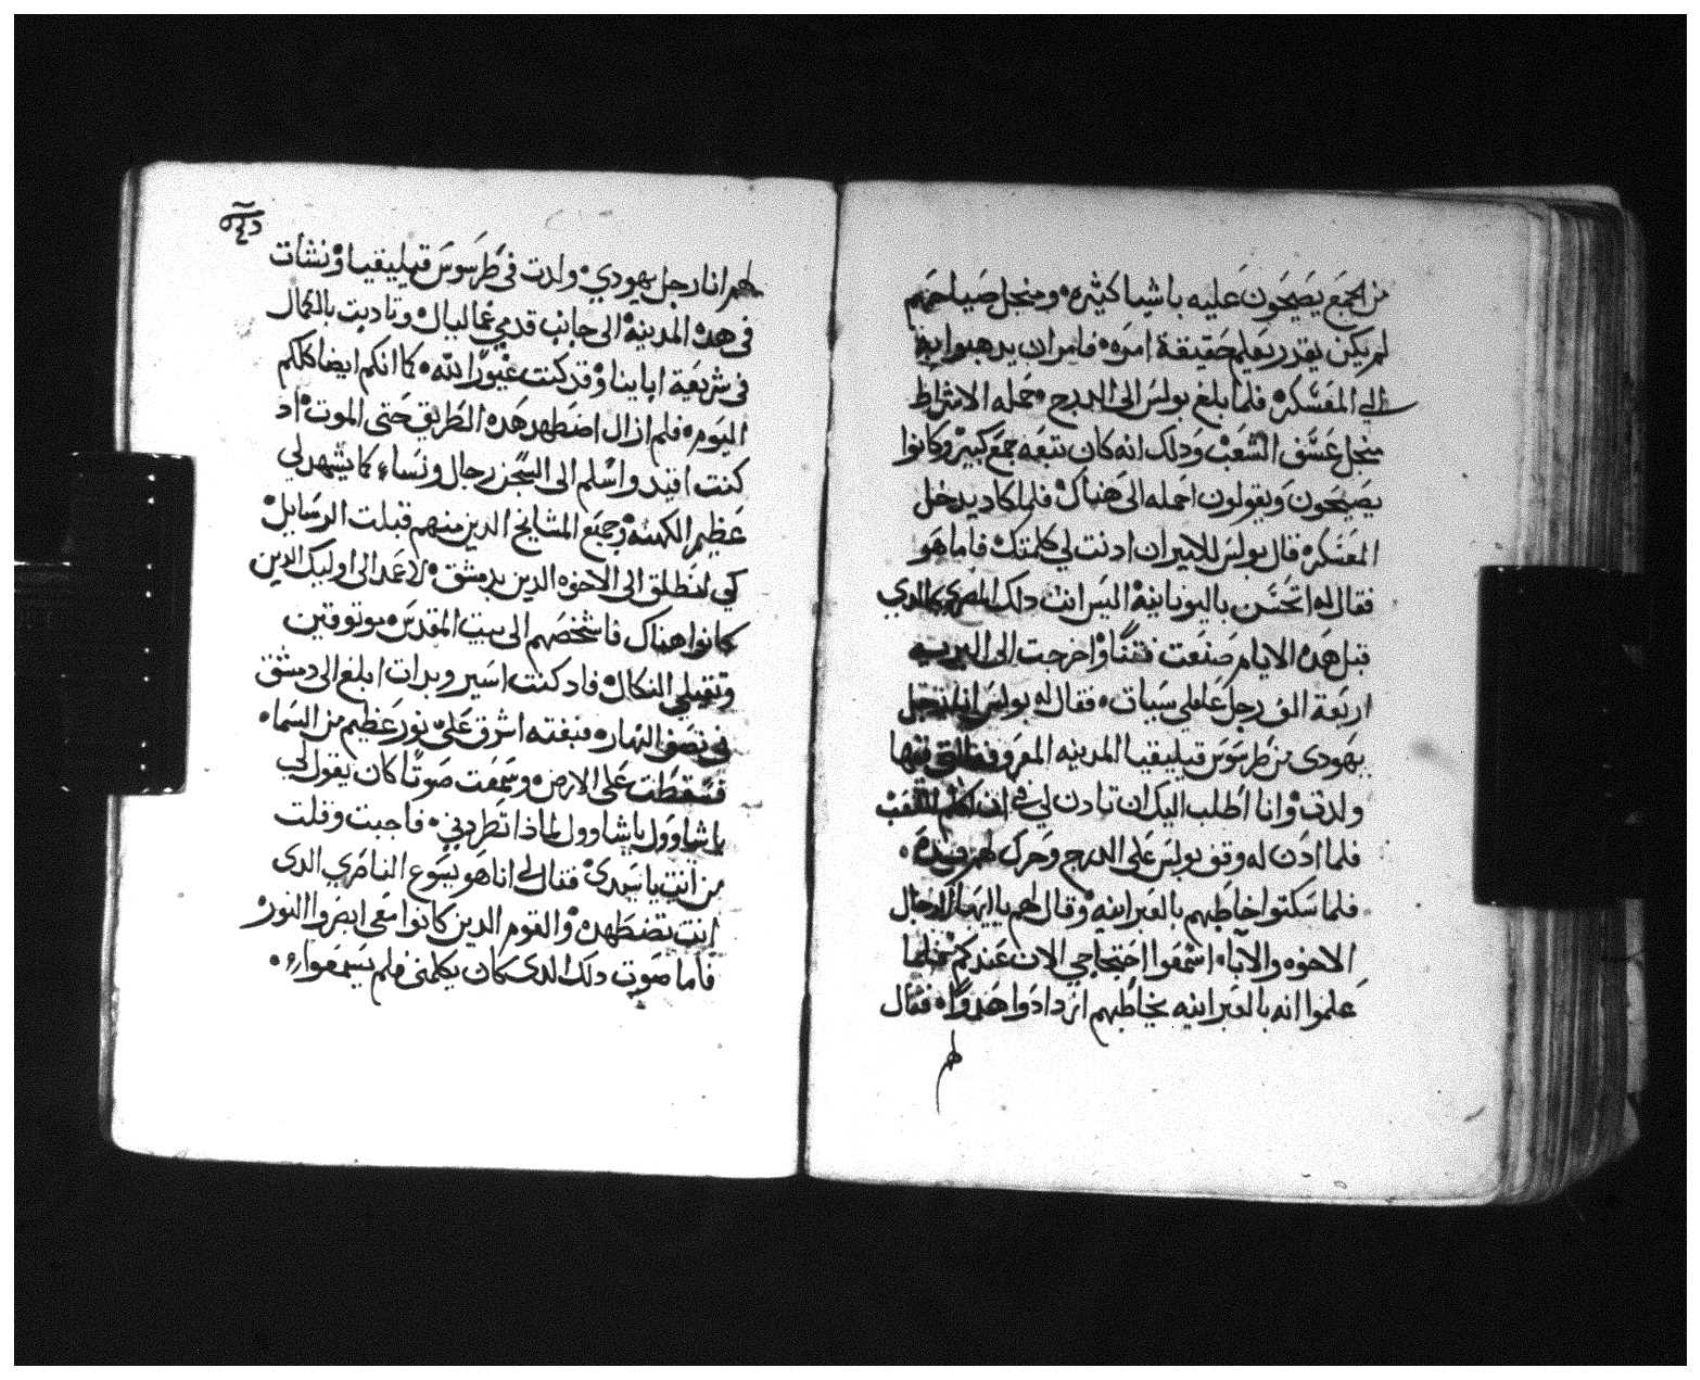 من الجمع يصيحون عليه باشيا كثيره ومنجل صياحهم
لم يكن يقدر يعلم حقيقة امره فامر ان يدهبوا به
الي المعسكر فلما بلغ بولس الى الدرج حمله الاشراط
منجل عسف الشعب ودلك انه كان تتبعه جمع كبير وكانوا
يصيحون ويقولون احمله الى هناك فلما كاد يدخل
المعسكر قال بولس للامير ان ادنت لي كلمتك فاما هو
فقال له اتحسن باليونانية اليس انت دلك المصري الدي
قبل هده الايام صنعت فتنًا واخرجت الى البريه
اربعة الف رجل عاملي سيات فقال له بولس انا رجل
يهودى من طرسوس قيليقيا المدينه المعروفه التى فيها
ولدت وانا اطلب اليك ان تادن لي في ان اكلم الشعب
فلما ادن له وقف بولس على الدرج وحرك لهم يده
فلما سكتوا خاطبهم بالعبرانيه وقال لهم يا ايها الرجال
الاخوه والآباء اسمعوا احتجاجي الان عندكم فلما
علموا انه بالعبرانيه يخاطبهم ازدادوا هدوًا فقال
لهم
لهم انا رجل يهودي ولدت في طرسوس قيليقيا ونشات
في هده المدينة الى جانب قدمي غماليال وتادبت بالكمال
في شريعة اباينا وقد كنت غيورًا لله كما انكم ايضا كلكم
اليوم فلم ازال اضطهد هده الطريق حتى الموت اد
كنت اقيد واسلم الى السجن رجال ونساء كما يشهد لي
عظيم الكهنه وجميع المشايخ الدين منهم قبلت الرسايل
كي انطلق الى الاخوه الدين بدمشق لاعمد الى اوليك الدين
كانوا هناك فاشخصهم الى بيت المقدس موتوقين
وتقبلي النكال فاد كنت اسير وبدات ابلغ الى دمشق
في نصف النهار فبغته اشرق على نور عظيم من السما
فسقطت على الارض وسمعت صوتًا كان يقول لي
ياشاوول ياشاوول لماذا تطردني فاجبت وقلت
من انت ياسيدى فقال لي انا هو يسوع الناصري الدى
انت تضطهده والقوم الدين كانوا معى ابصروا النور
فاما صوت دلك الدى كان يكلمنى فلم يسمعوا